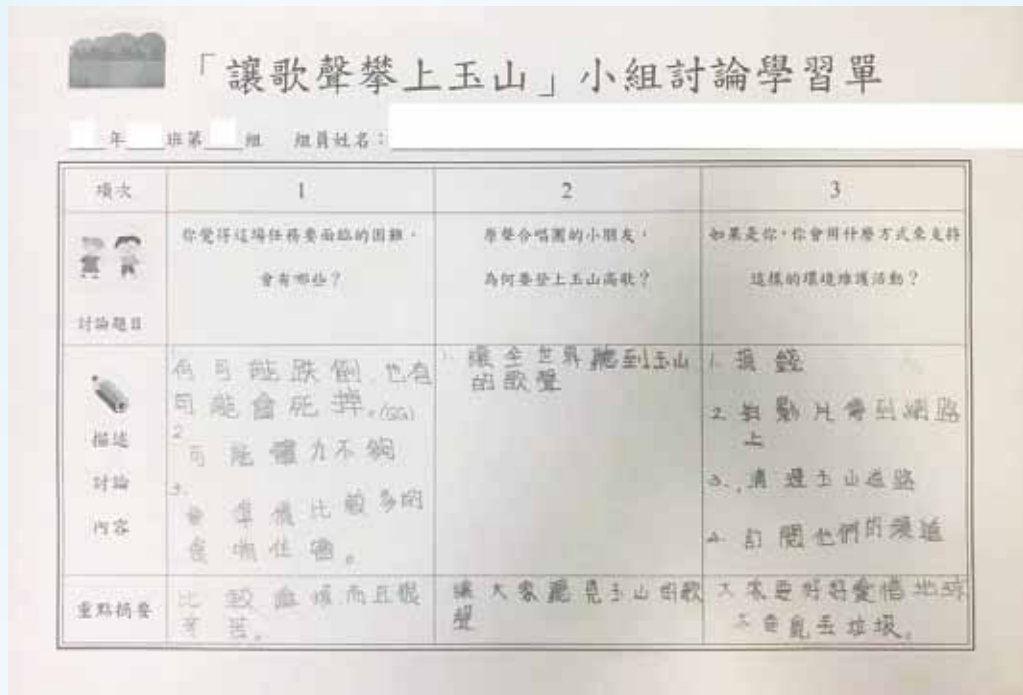 「讓歌聲攀上玉山」小組討論學習單
年 班第 組 組員姓名：
項次 1 2 3
討論題目
你覺得這場任務要面臨的困難，
會有哪些？
原聲合唱團的小朋友，
為何要登上玉山高歌？
如果是你，你會用什麼方式來支持
這樣的環境維護活動？
描述
討論
內容
有可能跌倒 也有
可能會死掉。(GG)
2.
可能體力不夠
3.
會準備比較多的
食物住宿。
1. 讓全世界聽到玉山
的歌聲
1. 捐錢
2. 拍影片傳到網路
上
3. 清理玉山道路
4. 訂閱他們的頻道
重點摘要
比較 而且很
辛苦。
讓大家聽見玉山的歌
聲
大家要好好愛惜地球
不要亂丟垃圾。